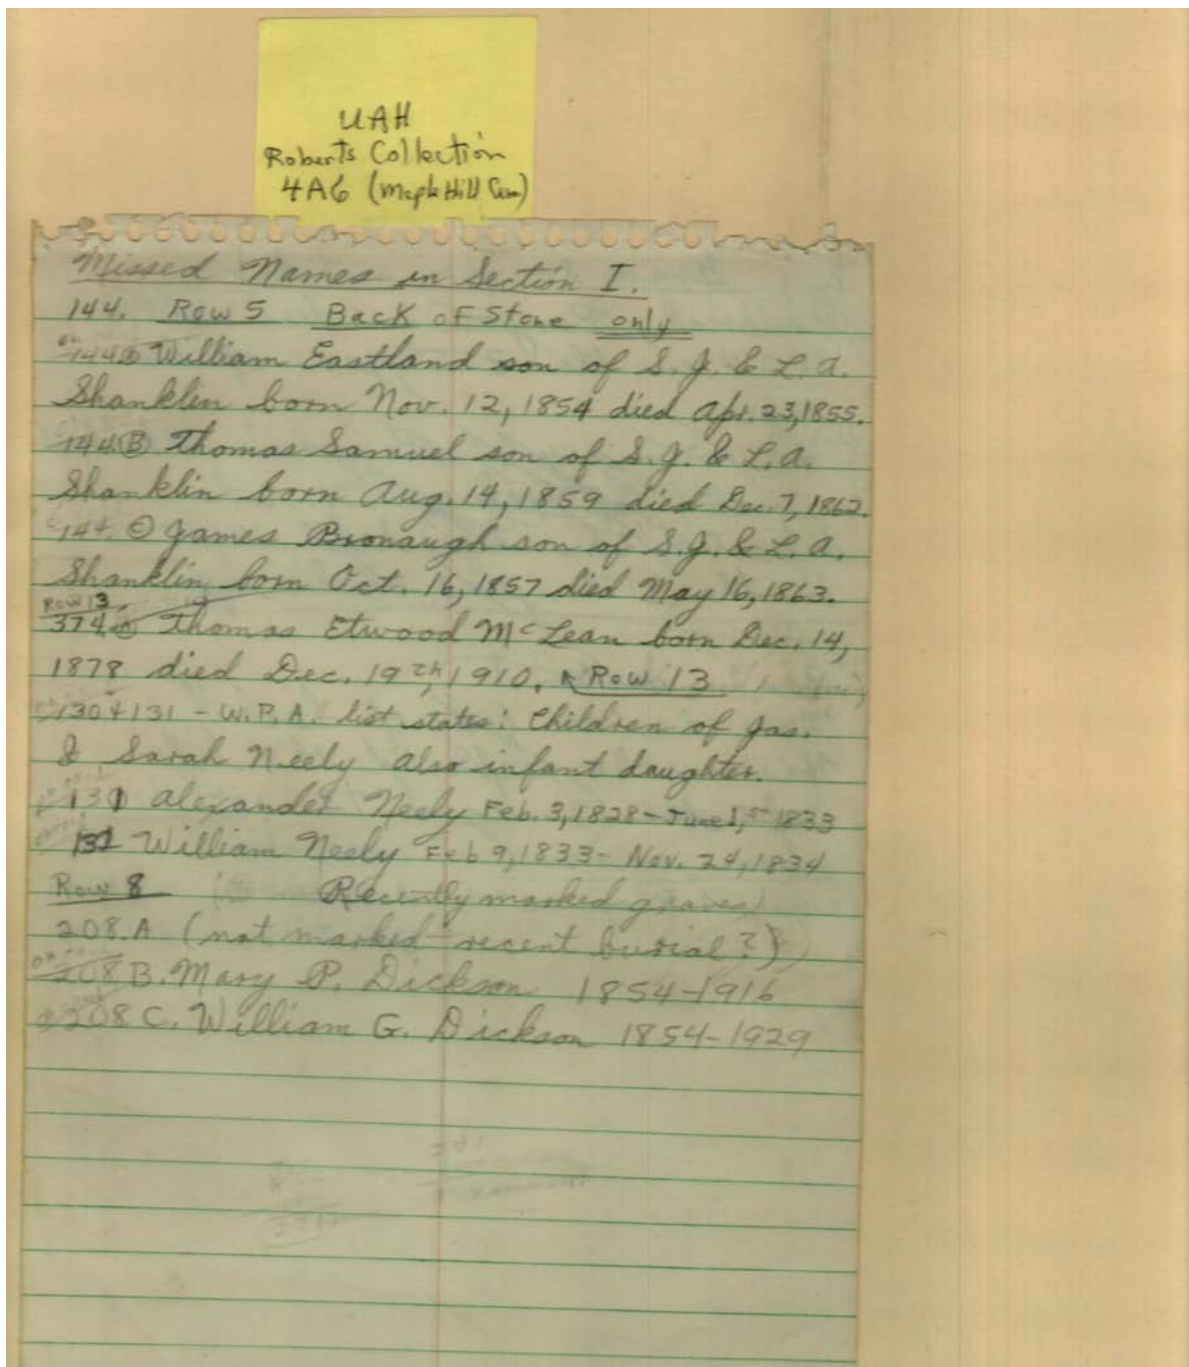 UAH
Roberts Collection
4A6 (Maple Hill Cem)
Missed Names in Section I.
144. Row 5 Back of Stone only
144 A William Eastland son of S. J. & L. A.
Shanklin born Nov. 12, 1854 died Apr. 23, 1855.
144 B Thomas Samuel son of S. J. & L. A.
Shanklin born Aug. 14, 1859 died Dec. 7, 1862.
144. C James Bronaugh son of S. J. & L. A.
Shanklin born Oct. 16, 1857 died May 16, 1863.
Row 13
374. Thomas Etwood McLean born Dec. 14,
1878 died Dec. 19th, 1910. Row 13
130 & 131 - W.P.A. list states: Children of Jas.
& Sarah Neely also infant daughter.
131 Alexander Neely Feb. 3, 1828 - June 1, st 1833
132 William Neely Feb 9, 1833 - Nov. 24, 1834
Row 8 Recently marked graves)
208.A (not marked - recent burial?)
208 B. Mary P. Dickson 1854-1916
208 C. William G. Dickson 1854-1929